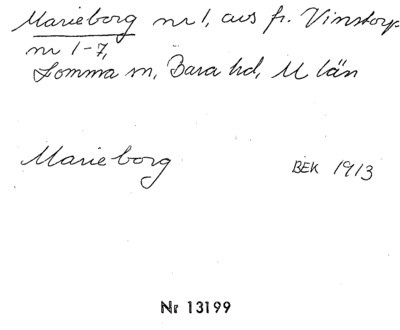 Marieborg nr 1, avs fr. Vinstorp
nr 1-7,
Lomma m, Bara hd, M län
Marieborg
BEK 1913
Nr 13199